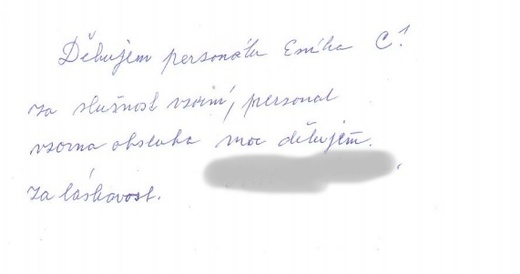 Děkujem personálu
za slušnost personal
vzorna obsluha moc děkujem.
za láskavost.